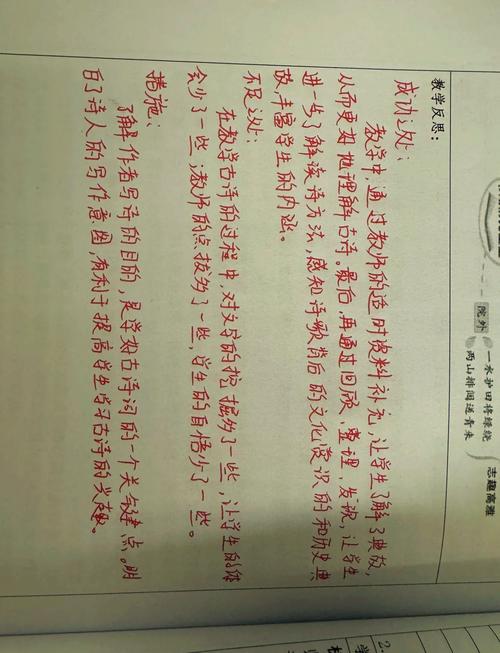 院外
一水护田将绿绕
两山排闼送青来
志趣高雅
教学反思：
成功之处：
教学中，通过教师的适时资料补充，让学生了解了典故，
从而更好地理解古诗。最后，再通过回顾、整理、发现，让学生
进一步了解读诗方法，感知诗歌背后的文化常识的和历史典
故，丰富学生的内涵。
不足之处：
在教学古诗的过程中，对文字的挖掘多了一些，让学生的体
会少了一些；教师的点拨多了一些，学生的自悟少了一些。
措施：
了解作者写诗的目的，是学好古诗词的一个关键点。明
白了诗人的写作意图，有利于提高学生学习古诗的兴趣。
2.